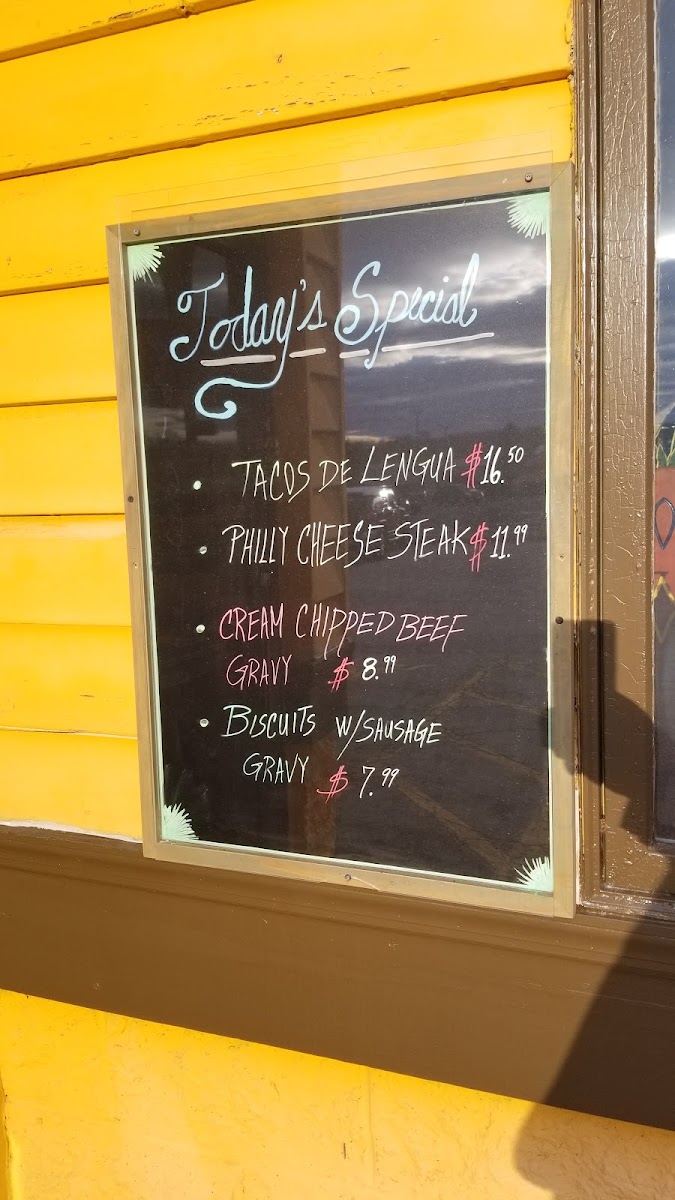 Today's Special
TACOS DE LENGUA $16.50
PHILLY CHEESE STEAK $11.99
CREAM CHIPPED BEEF
GRAVY $8.99
BISCUITS W/SAUSAGE
GRAVY $7.99